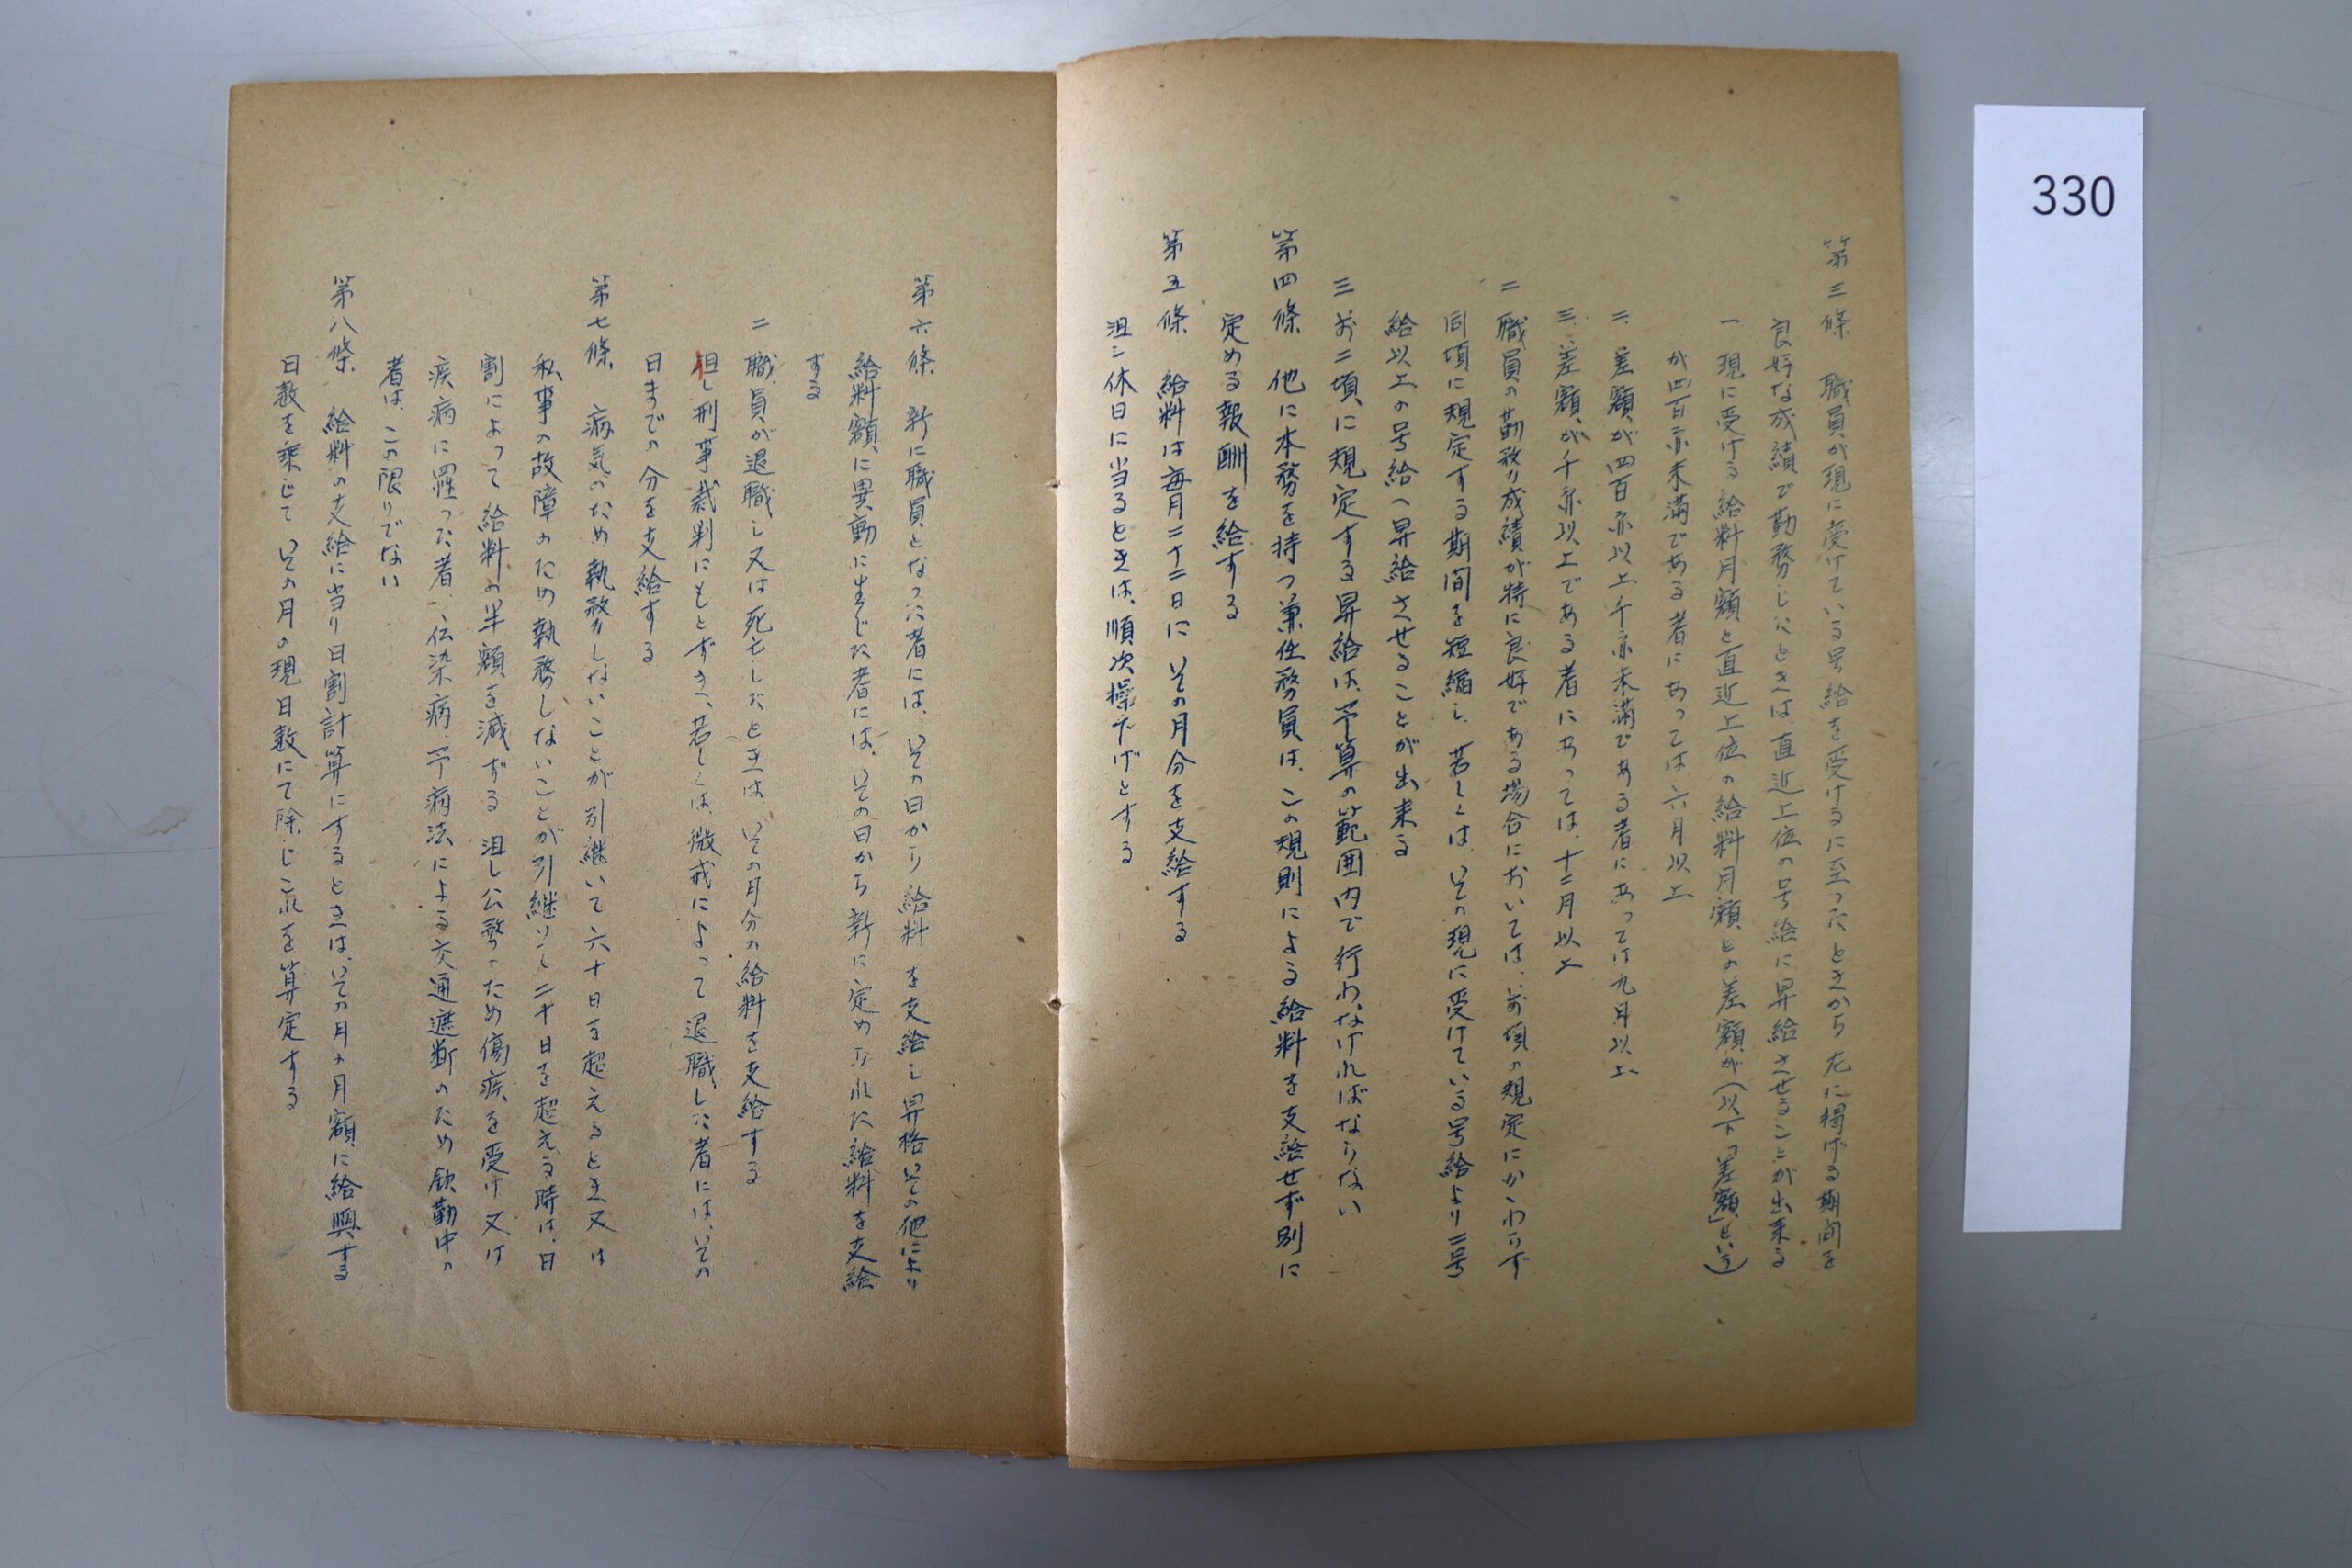 330
第三條　職員が現に受けている号給を受けるに至ったときから左に掲げる期間を
良好な成績で勤務したときは、直近上位の号給に昇給させることが出来る
一　現に受ける給料月額と直近上位の給料月額との差額が（以下「差額」という）
が四百円未満である者にあっては六月以上
二、差額が四百円以上千円未満である者にあっては九月以上
三、差額が千円以上である者にあっては、十二月以上
二　職員の勤務の成績が特に良好である場合においては、前項の規定にかゝわらず
同項に規定する期間を短縮し、若しくは、その現に受けている号給より二号
給以上の号給へ昇給させることが出来る
三　前二項に規定する昇給は、予算の範囲内で行わなければならない
第四條　他に本務を持つ兼任務員は、この規則による給料を支給せず別に
定める報酬を給する
第五條　給料は毎月二十二日に、その月分を支給する
但シ休日に当るときは、順次操下げとする
第六條　新に職員となった者には、その日から給料を支給し昇格その他により
給料額に異動に生じた者には、その日から新に定められた給料を支給
する
二　職員が退職し又は死亡したときは、その月分の給料を支給する
但し刑事裁判にもとずき、若しくは、微戒によって退職した者には、その
日までの分を支給する
第七條　病気のため執務しないことが引継いて六十日を超えるとき又は
私事の故障のため執務しないことが引継いて二十日を超える時は、日
割によって給料の半額を減ずる　但し公務のため傷疾を受け又は
疾病に罹った者、伝染病予病法による交通遮断のため欽勤中の
者は、この限りでない
第八條　給料の支給に当り日割計算にするときは、その月の月額に給與する
日数を乗じて、その月の現日数にて除じこれを算定する